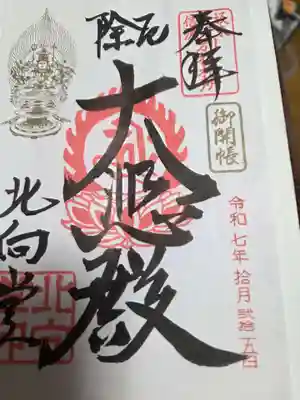 奉拝
御開帳
令和七年拾月弐拾五日
厄除
大悲殿
北向堂